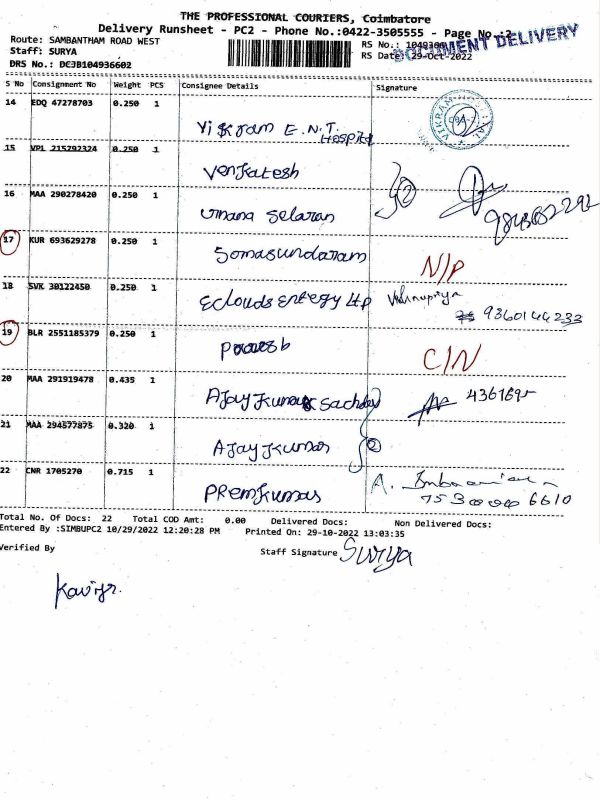 THE PROFESSIONAL COURIERS, Coimbatore
Delivery Runsheet - PC2 - Phone No.:0422-3505555 - Page No.:2
DOCUMENT DELIVERY
Route: SAMBANTHAM ROAD WEST RS No.:
Staff: SURYA RS Date: 29-Oct-2022
DRS No.: DC3B104936602
S No Consignment No Weight PCS Consignee Details Signature
14 EDQ 47278703 0.250 1 Vikram E.N.T. Hospital
15 VPL 215292324 0.250 1 Venkatesh
16 MAA 290278420 0.250 1 Umana Selaran
17 KUR 693629278 0.250 1 Somasundaram N/P
18 SVK 30122450 0.250 1 Eclouds Energy LLP 9360144233
19 BLR 2551185379 0.250 1 C/N
20 MAA 291919478 0.435 1 Ajay Kumar Sachdev
21 MAA 294577875 0.320 1 Ajay Kumar
22 CNR 1705270 0.715 1 Prem Kumar
Total No. Of Docs: 22 Total COD Amt: 0.00 Delivered Docs: Non Delivered Docs:
Entered By :SIMBUPC2 10/29/2022 12:20:28 PM Printed On: 29-10-2022 13:03:35
Verified By Staff Signature Surya